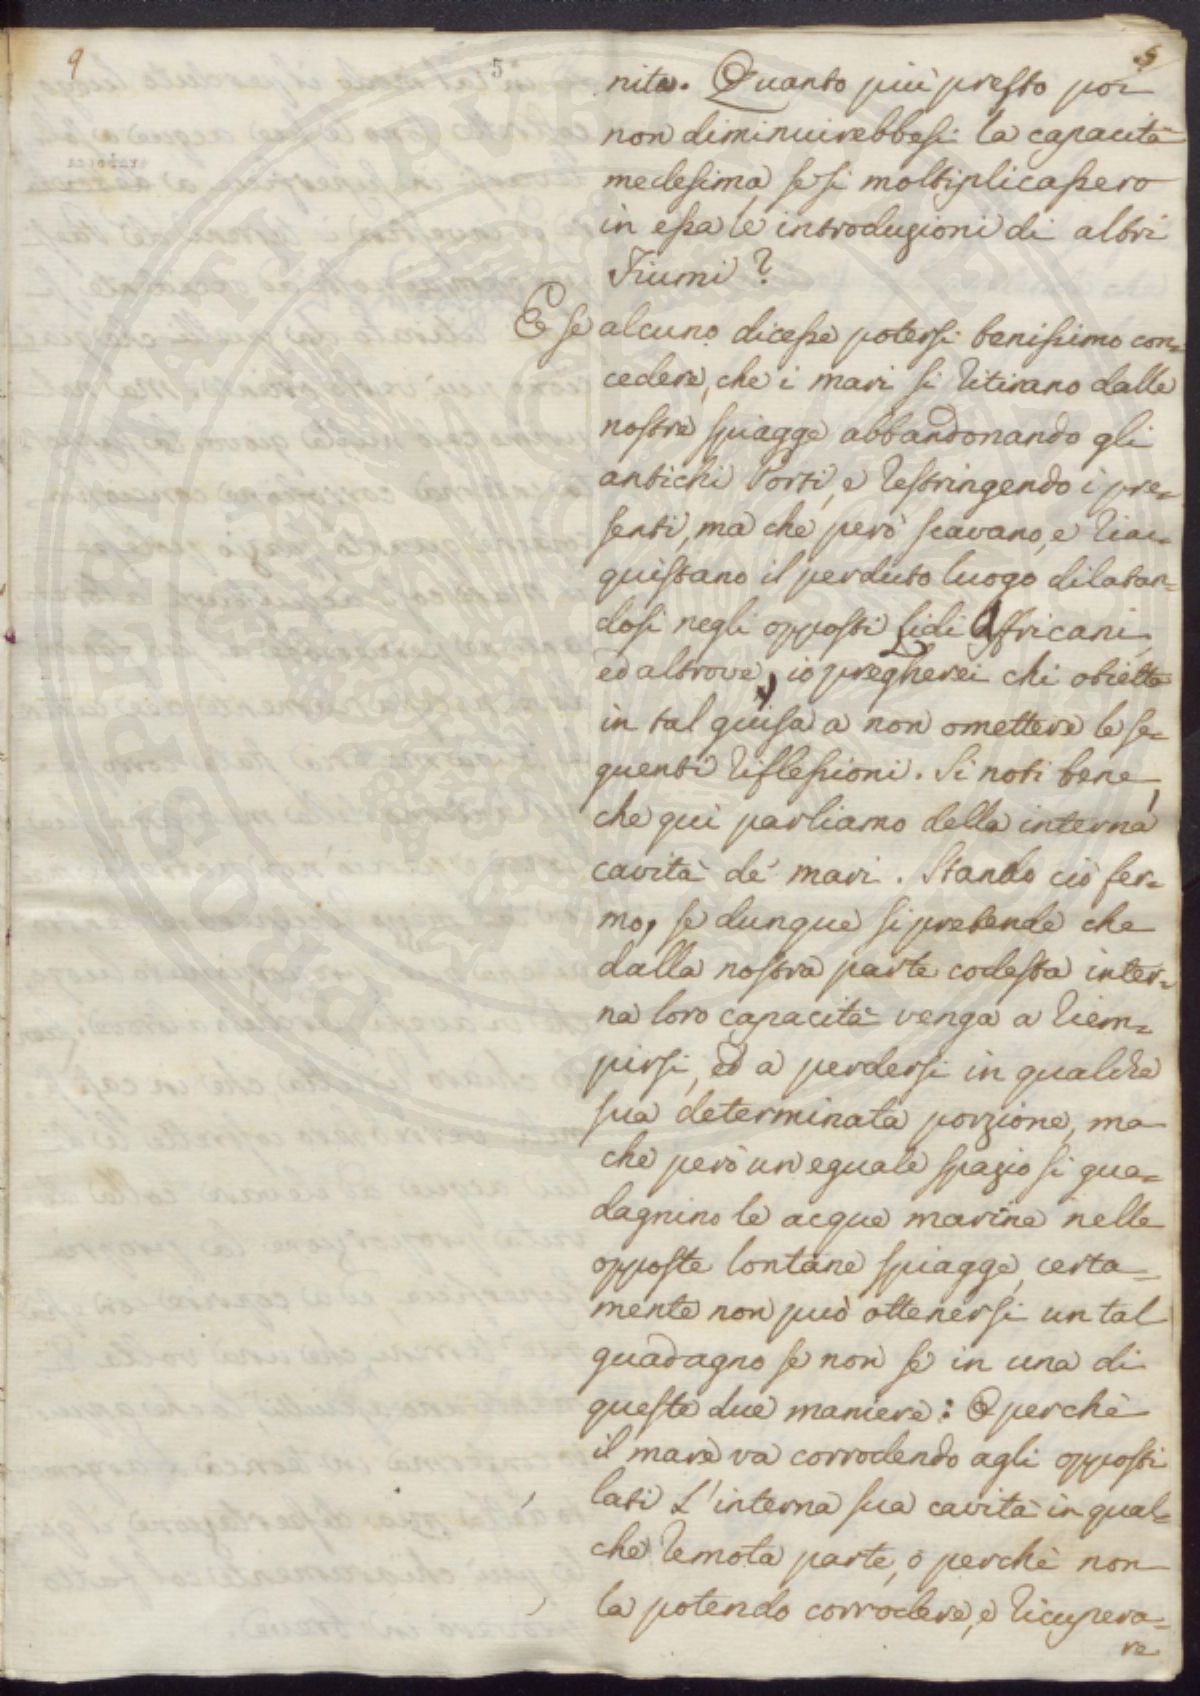 9
5
5
nita. Quanto più presto poi
non diminuirebbesi la capacità
medesima, se si moltiplicassero
in essa le introduzioni di altri
Fiumi?
E se alcuno dicesse potersi benissimo con=
cedere, che i mari si ritirano dalle
nostre spiagge abbandonando gli
antichi Porti, e restringendo i pre=
senti, ma che però scavano, e riac=
quistano il perduto luogo dilatan=
dosi negli opposti Lidi Affricani,
ed altrove, io pregherei chi obietta
in tal guisa a non omettere le se=
guenti riflessioni. Si noti bene,
che qui parliamo della interna
cavità de' mari. Stando ciò fer=
mo, se dunque si pretende che
dalla nostra parte codesta inter=
na loro capacità venga a riem=
pirsi, ed a perdersi in qualche
sua determinata porzione, ma
che però un eguale spazio si gua=
dagnino le acque marine nelle
opposte lontane spiagge, certa=
mente non può ottenersi un tal
guadagno se non se in una di
queste due maniere: O perchè
il mare va corrodendo agli opposti
lati l'interna sua cavità in qual=
che remota parte, o perchè non
la potendo corrodere, e ricupera=
re